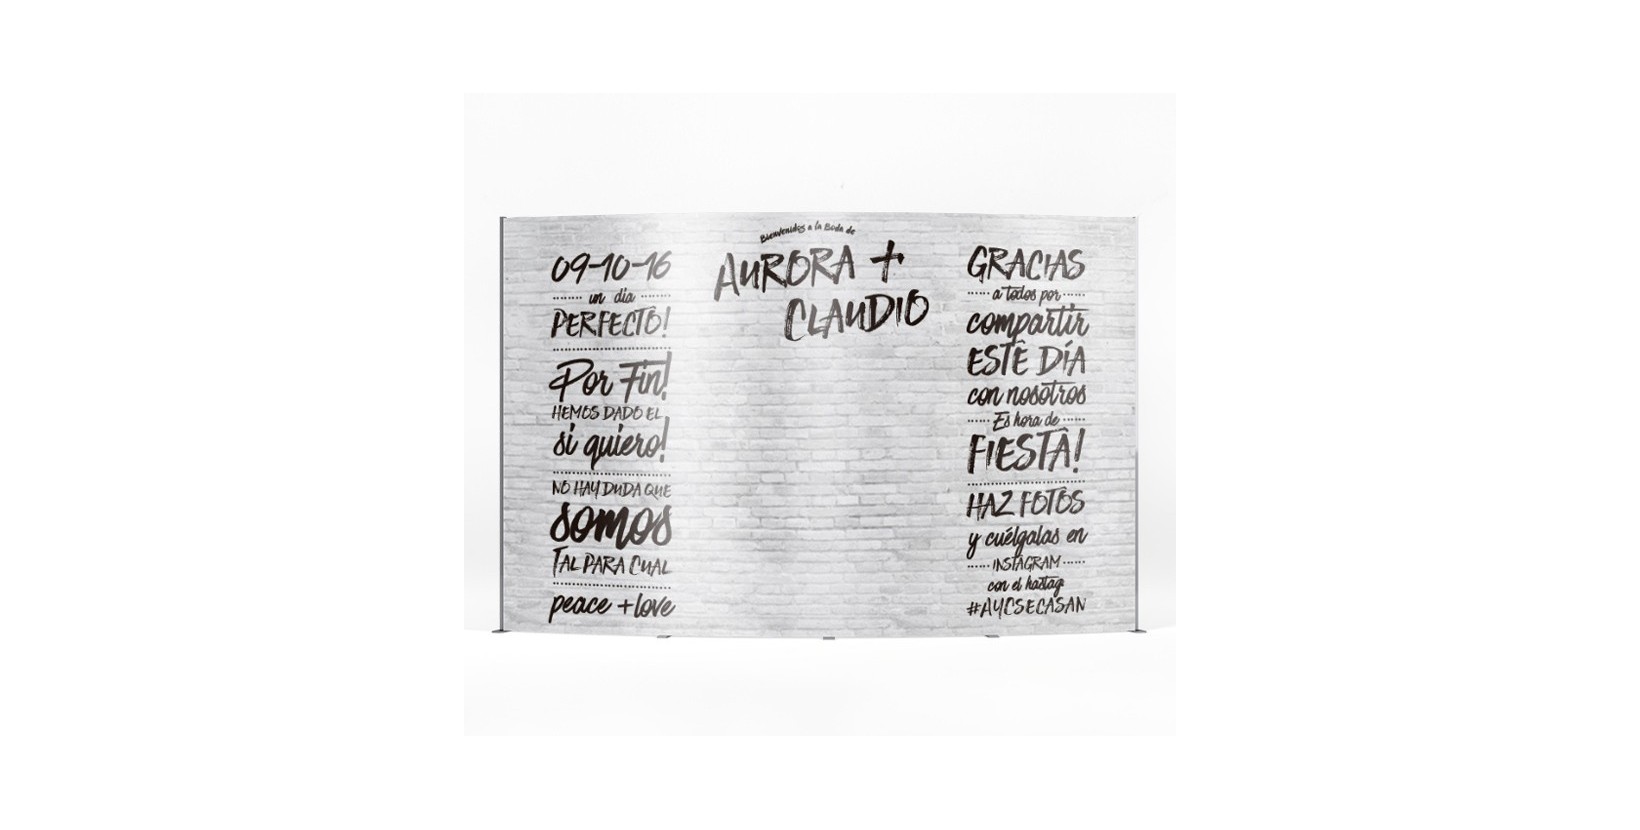 09-10-16
un dia
PERFECTO!
Por Fin!
HEMOS DADO EL
si quiero!
NO HAY DUDA QUE
somos
TAL PARA CUAL
peace + love
Bienvenidos a la Boda de
AURORA +
CLAUDIO
GRACIAS
a todos por
compartir
ESTE DÍA
con nosotros
Es hora de
FIESTA!
HAZ FOTOS
y cuélgalas en
INSTAGRAM
con el hastag:
#AYCSECASAN